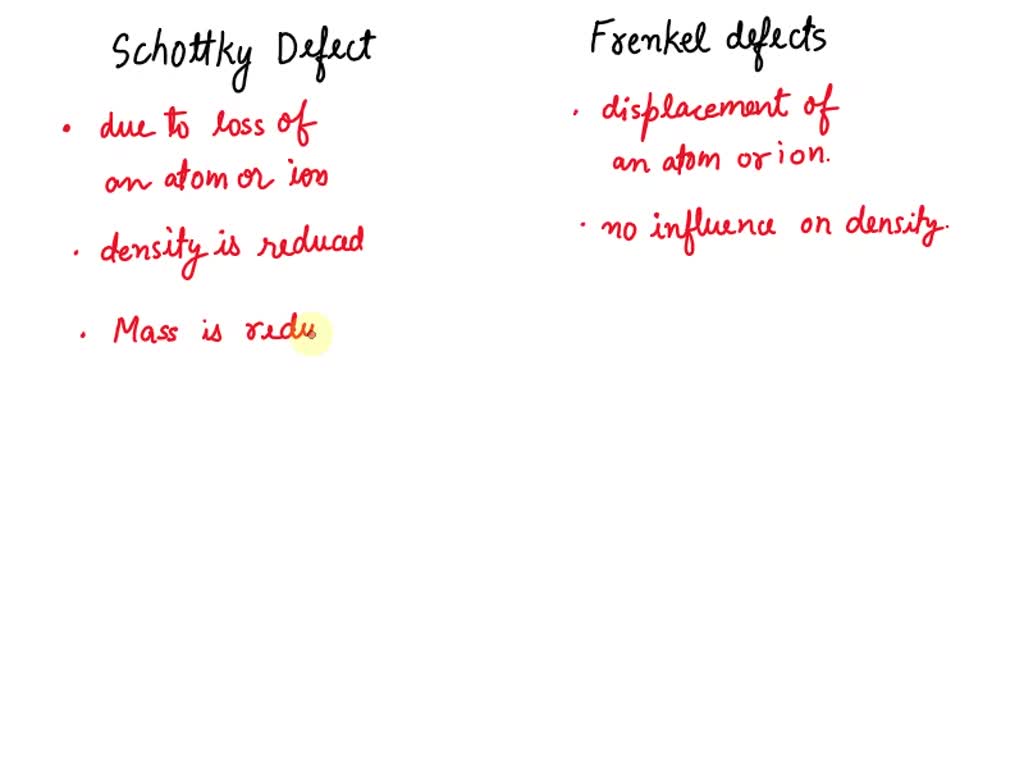 Schottky Defect
• due to loss of
an atom or ion
• density is reduced
• Mass is redu
Frenkel defects
• displacement of
an atom or ion.
• no influence on density.